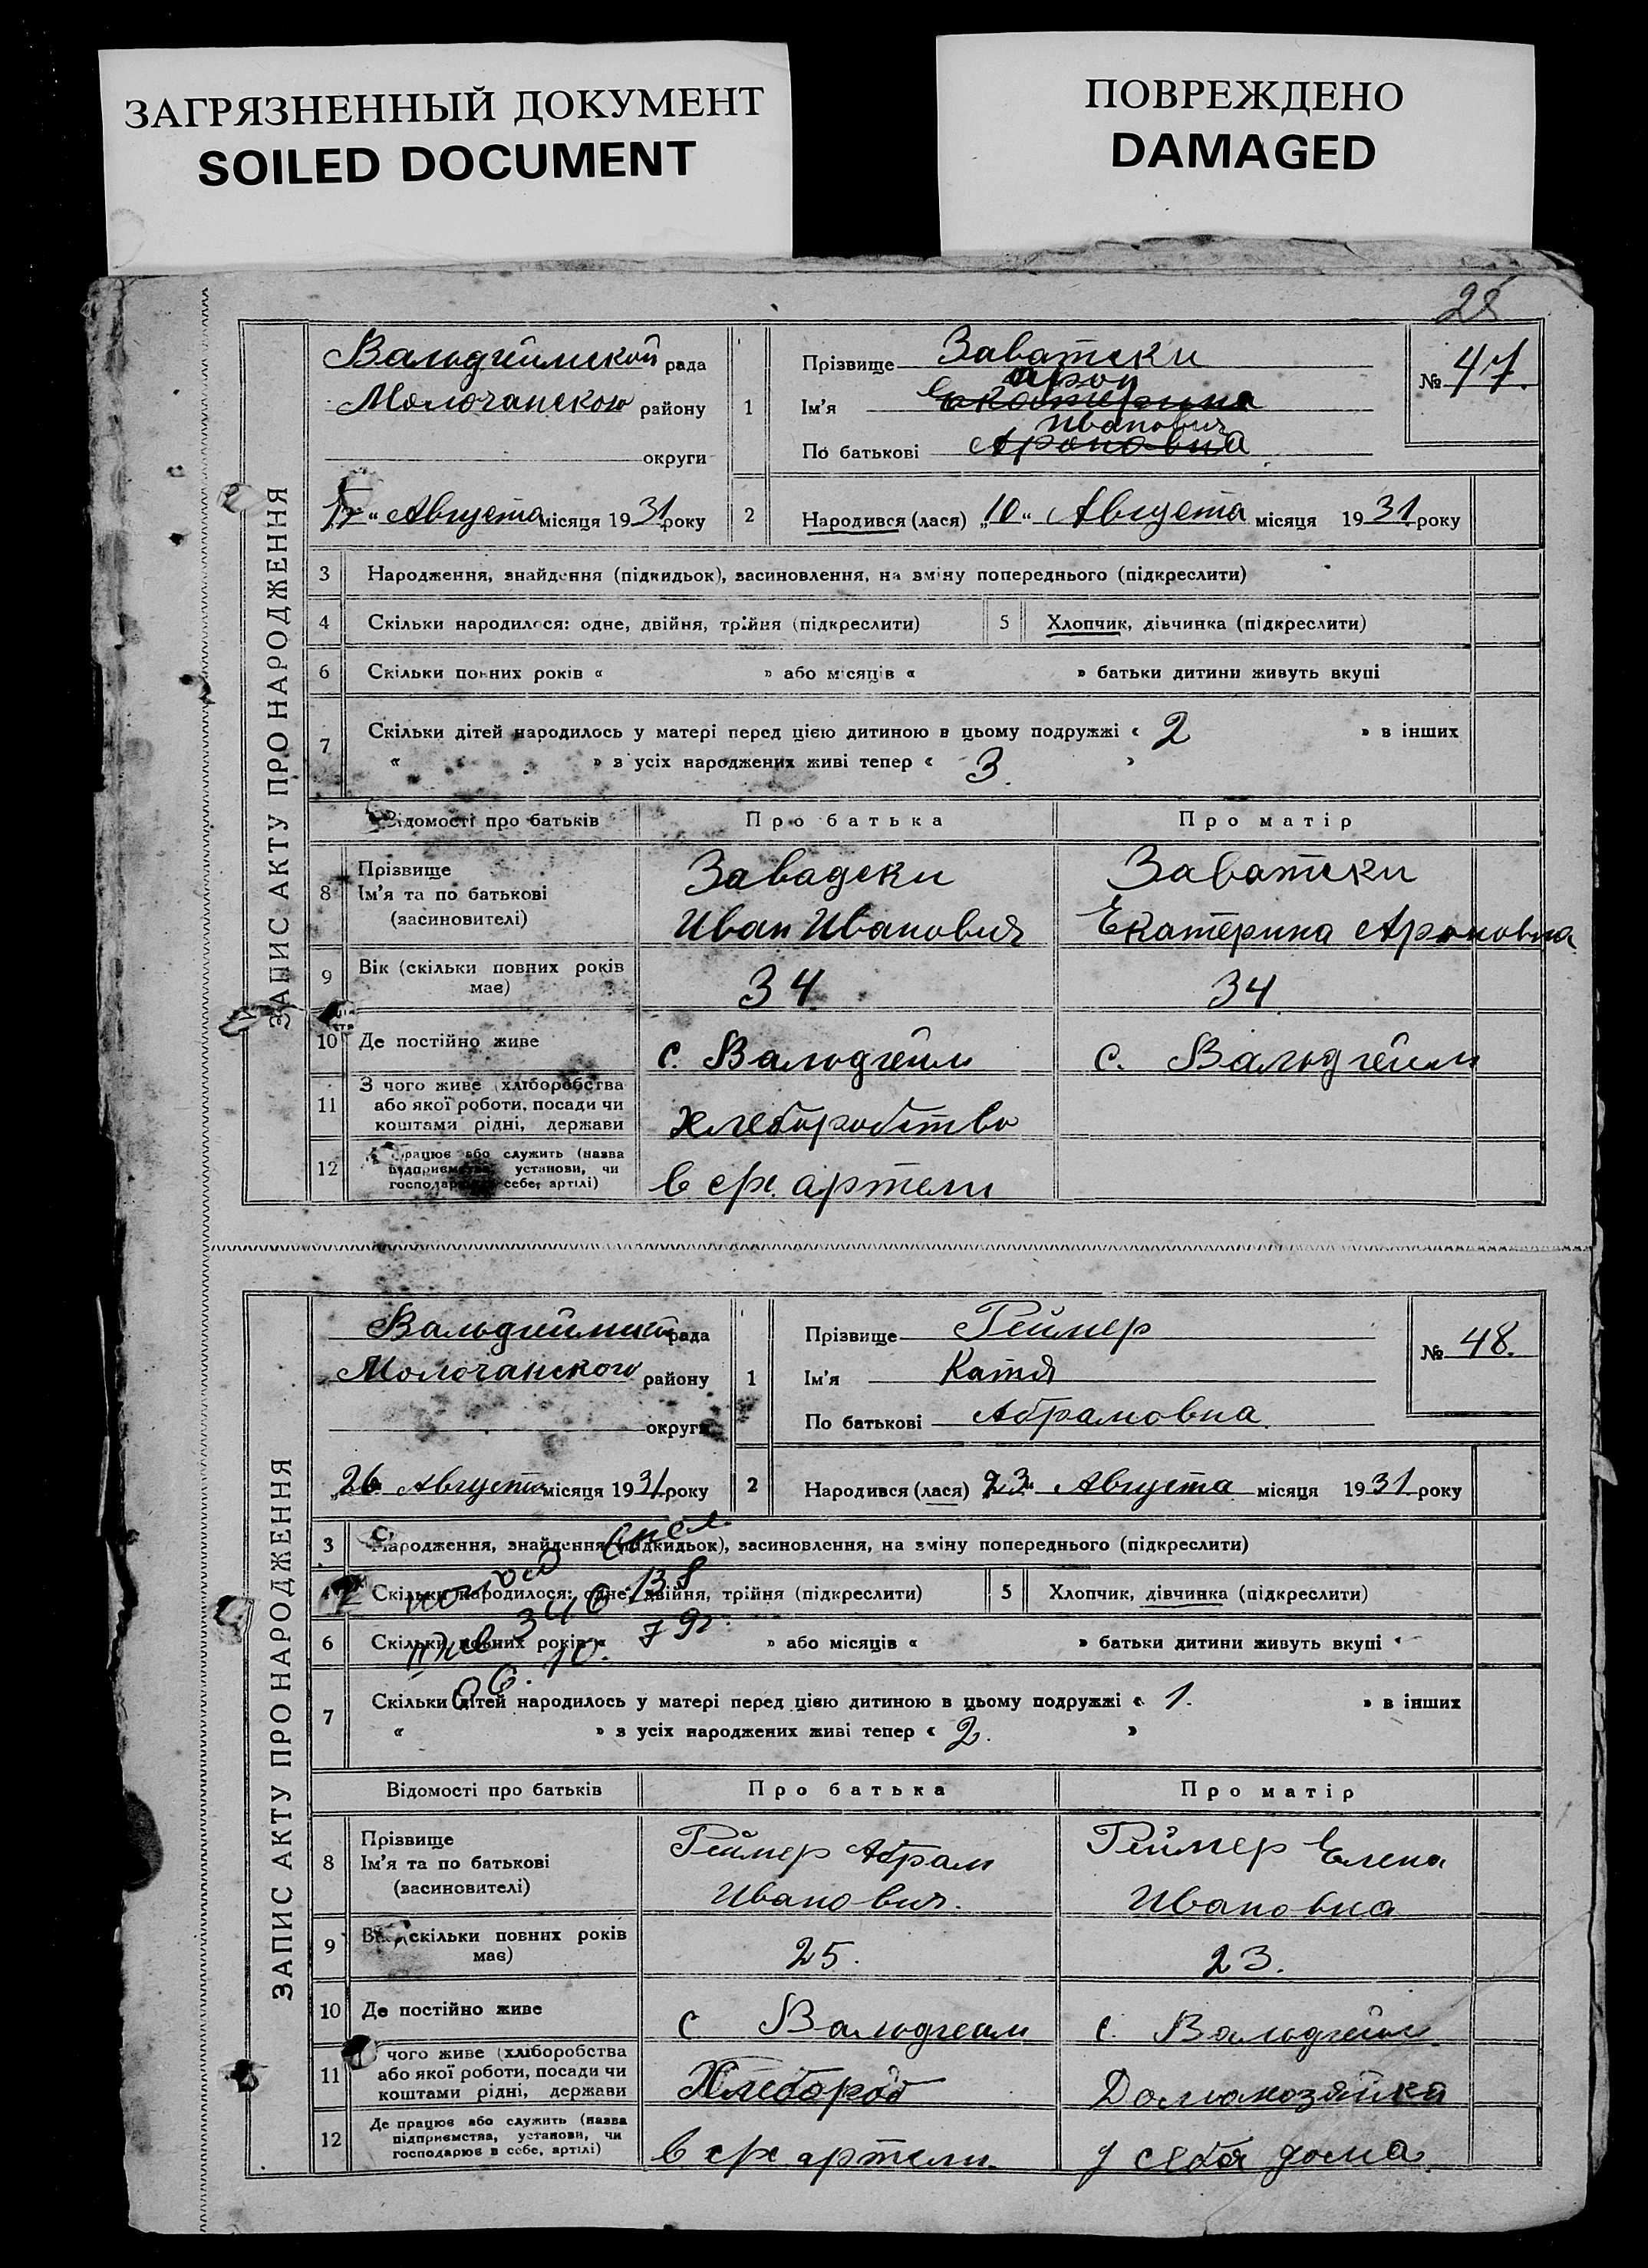 ЗАГРЯЗНЕННЫЙ ДОКУМЕНТ
SOILED DOCUMENT
ПОВРЕЖДЕНО
DAMAGED
28
ЗАПИС АКТУ ПРО НАРОДЖЕННЯ
Вальдгеймской рада
Молочанского району
округи
" Августа місяця 1931 року
1
Прізвище Заватски
Арон
Ім'я Екатерина
Иванович
По батькові Ароновна
№ 47.
2 Народився (лася) „10" Августа місяця 1931 року
3 Народження, знайдення (підкидьок), засиновлення, на зміну попереднього (підкреслити)
4 Скільки народилося: одне, двійня, трійня (підкреслити) 5 Хлопчик, дівчинка (підкреслити)
6 Скільки повних років « » або місяців « » батьки дитини живуть вкупі
7 Скільки дітей народилось у матері перед цією дитиною в цьому подружжі « 2 » в інших
« » з усіх народжених живі тепер « 3. »
Відомості про батьків Про батька Про матір
8 Прізвище Ім'я та по батькові (засиновителі)
Завадски Заватски
Иван Иванович Екатерина Ароновна
9 Вік (скільки повних років має) 34 34
10 Де постійно живе с. Вальдгейм с. Вальдгейм
11 З чого живе (хліборобства
або якої роботи, посади чи
коштами рідні, держави
Хлеборобство
12 працює або служить (назва
підприємства, установи, чи
господарює в себе, артілі)
в с/х. артели
ЗАПИС АКТУ ПРО НАРОДЖЕННЯ
Вальдгеймской рада
Молочанского району
округи
„26 Августа місяця 1931 року
1
Прізвище Реймер
Ім'я Катя
По батькові Абрамовна
№ 48.
2 Народився (лася) 23" Августа місяця 1931 року
3 Народження, знайдення (підкидьок), засиновлення, на зміну попереднього (підкреслити)
4 Скільки народилося: одне, двійня, трійня (підкреслити) 5 Хлопчик, дівчинка (підкреслити)
6 Скільки повних років « » або місяців « » батьки дитини живуть вкупі
7 Скільки дітей народилось у матері перед цією дитиною в цьому подружжі « 1. » в інших
« » з усіх народжених живі тепер « 2. »
Відомості про батьків Про батька Про матір
8 Прізвище Ім'я та по батькові (засиновителі)
Реймер Абрам Реймер Елена
Иванович. Ивановна
9 Вік (скільки повних років має) 25. 23.
10 Де постійно живе с. Вальдгейм с. Вальдгейм
11 чого живе (хліборобства
або якої роботи, посади чи
коштами рідні, держави
Хлебороб Домохозяйка
12 Де працює або служить (назва
підприємства, установи, чи
господарює в себе, артілі)
в с/х артели у себя дома.